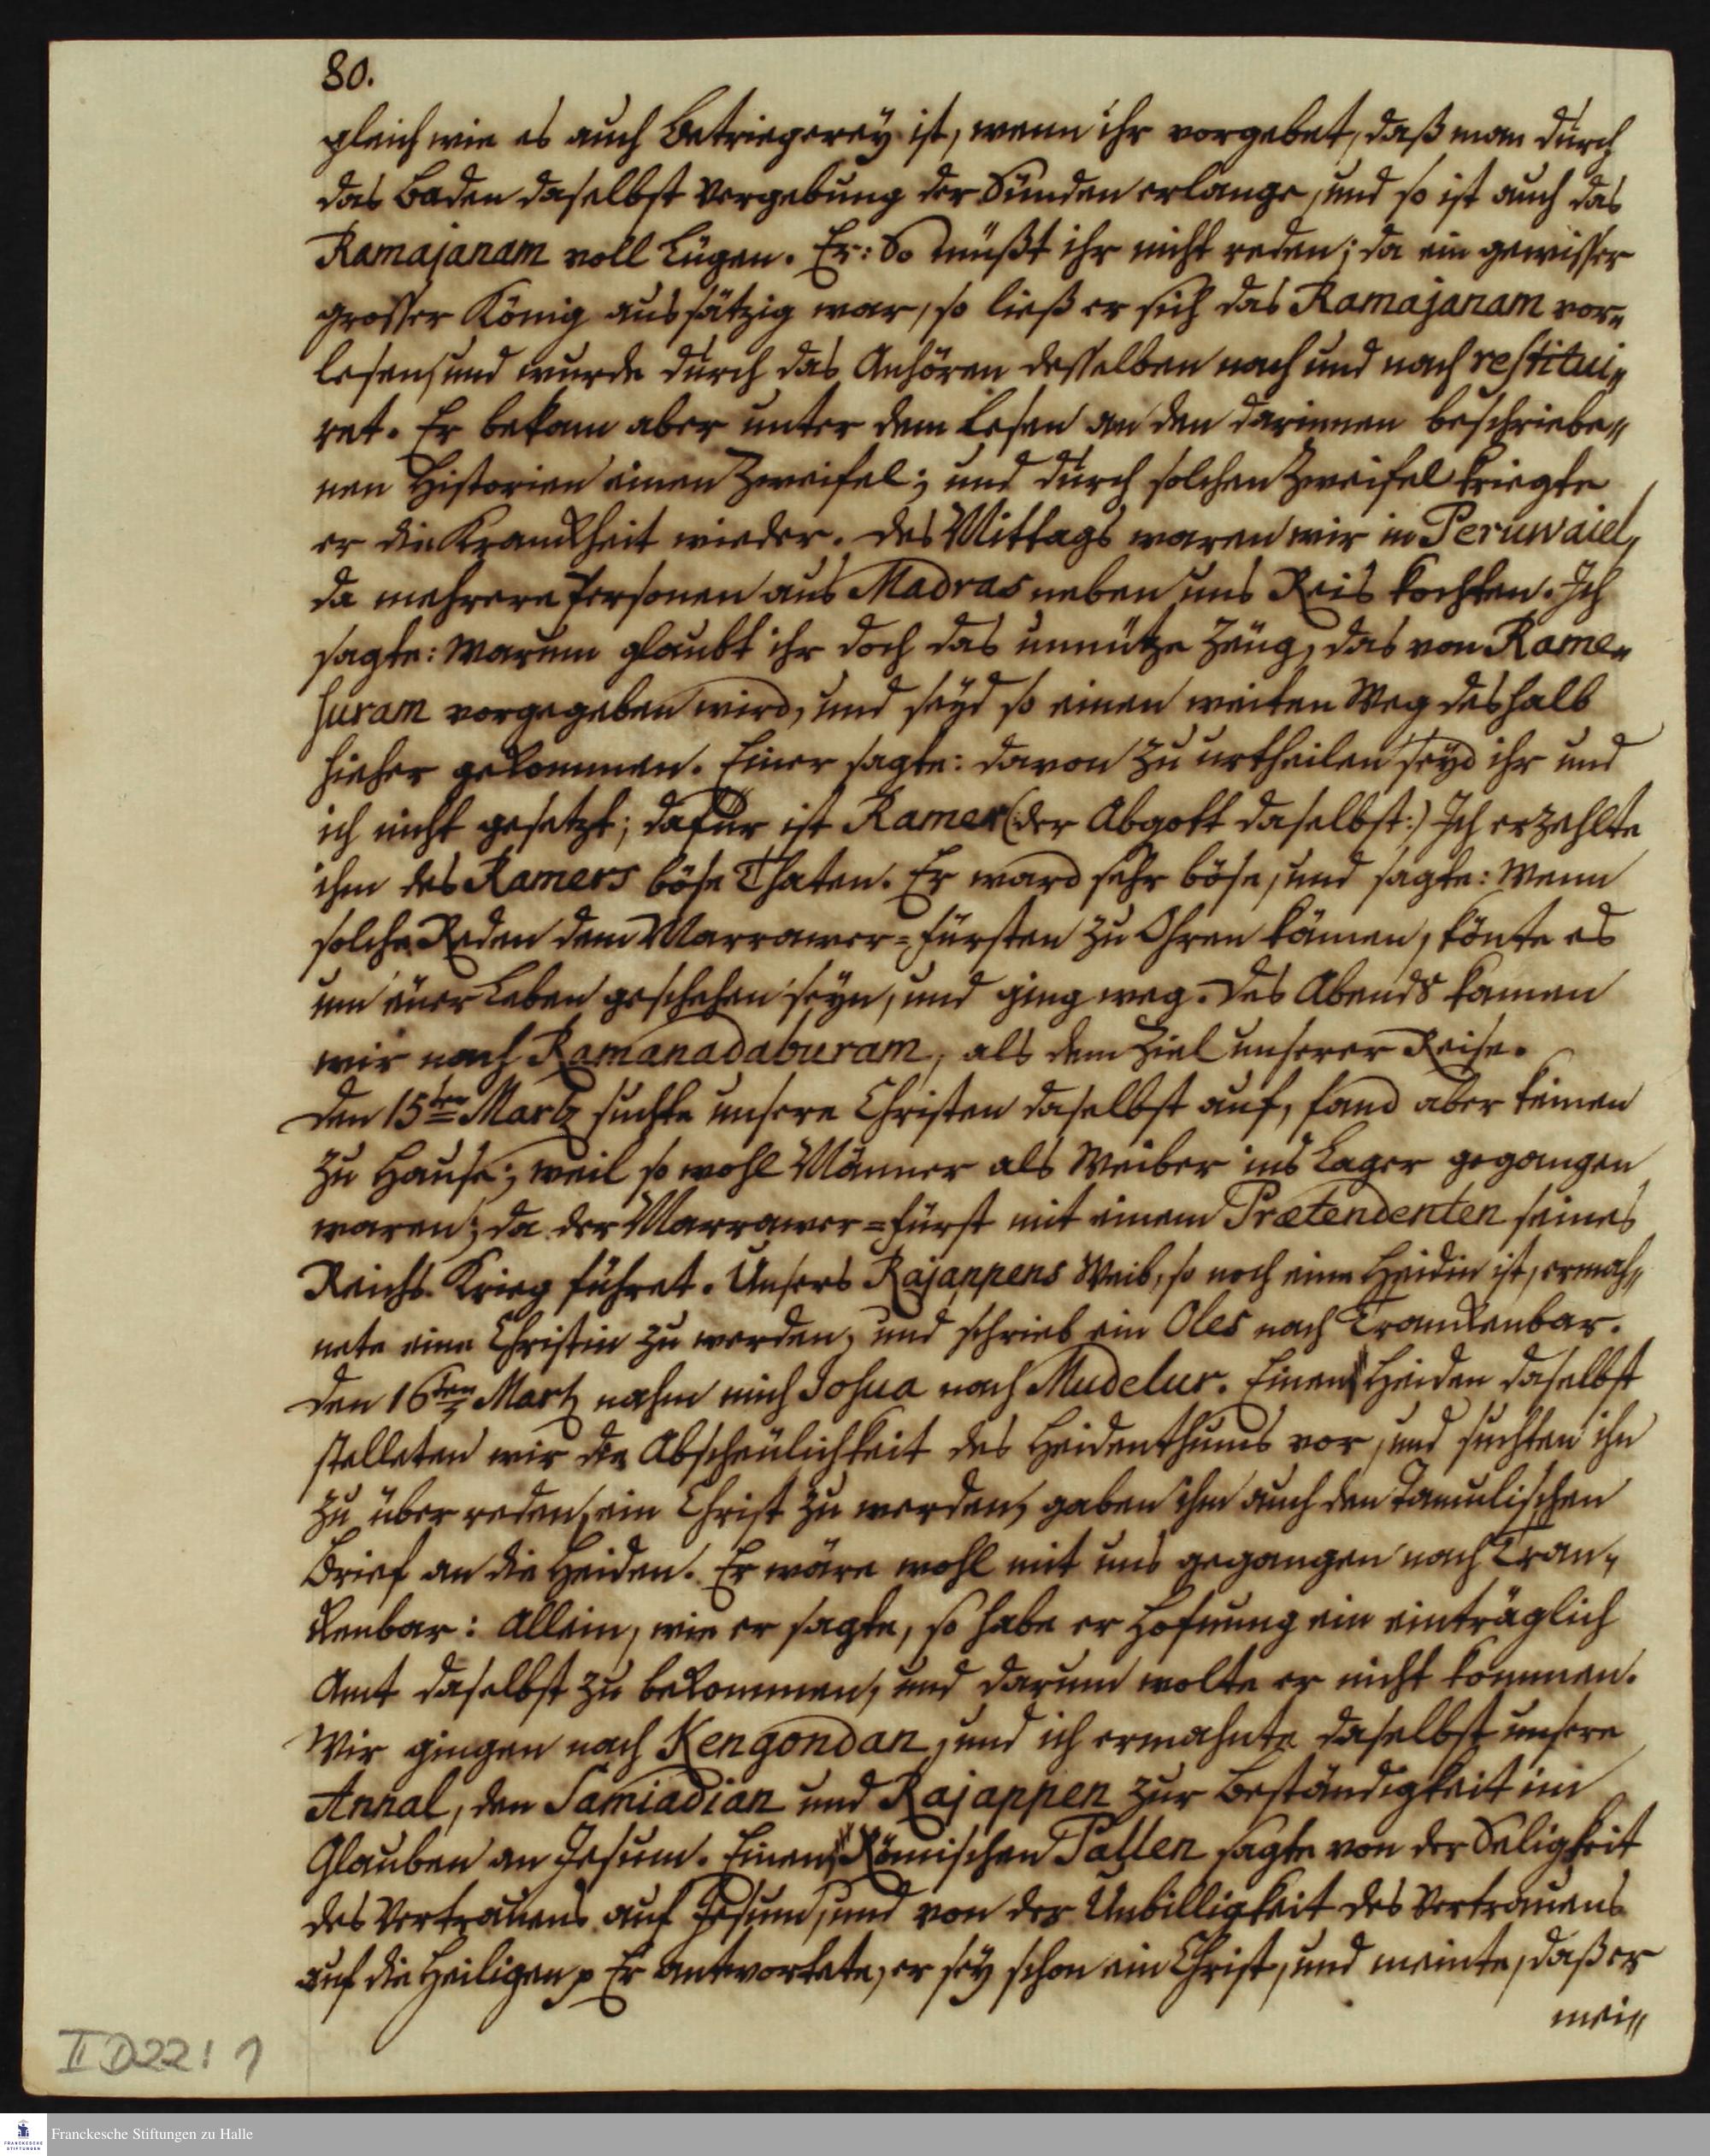 80.
gleich wie es auch Betriegerey ist, wenn ihr vorgebet, daß man durch
das Baden daselbst Vergebung der Sünden erlange, und so ist auch das
Ramajanam voll Lügen. Er: So müßt ihr nicht reden; da ein gewisser
grosser König aussätzig war, so ließ er sich das Ramajanam vor„
lesen, und wurde durch das Anhören desselben nach und nach restitui„
ret. Er bekam aber unter dem Lesen an den darinnen beschriebe„
nen Historien einen Zweifel; und durch solchen Zweifel kriegte
er die Kranckheit wieder. Des Mittags waren wir in Peruwaiel,
da mehrere Personen aus Madras neben uns Reis kochten. Ich
sagte: Warum glaubt ihr doch das unnütze Zeug, das von Rame„
suram vorgegeben wird, und seyd so einen weiten Weg deshalb
hieher gekommen. Einer sagte: davon zu urtheilen seyd ihr und
ich nicht gesetzt; dafür ist Ramer (der Abgott daselbst:) Ich erzehlte
ihm des Ramers böse Thaten. Er ward sehr böse, und sagte: Wenn
solche Reden dem Marrawer=Fürsten zu Ohren kämen, könte es
um euer Leben geschehen seyn, und ging weg. Des Abends kamen
wir nach Ramanadaburam, als dem Ziel unserer Reise.
Den 15ten Martz suchte unsere Christen daselbst auf, fand aber keinen
zu Hause; weil so wohl Männer als Weiber ins Lager gegangen
waren; da der Marrawer=Fürst mit einem Prætendenten seines
Reichs Krieg führet. Unsers Rajappens Weib, so noch eine Heidin ist, ermah„
nete eine Christin zu werden, und schrieb ein Oles nach Tranckenbar.
Den 16ten Martz nahm mich Josua nach Mudelur. Einem Heiden daselbst
stelleten wir die Abscheulichkeit des Heidenthums vor, und suchten ihn
zu überreden, ein Christ zu werden, gaben ihm auch den Tamulischen
Brief an die Heiden. Er wäre wohl mit uns gegangen nach Tran„
ckenbar: Allein, wie er sagte, so habe er Hofnung ein einträglich
Amt daselbst zu bekommen, und darum wolte er nicht kommen.
Wir gingen nach Kengondan, und ich ermahnte daselbst unsere
Annal, den Samiadian und Rajappen zur Beständigkeit im
Glauben an Jesum. Einem Römischen Pallen sagte von der Seligkeit
des Vertrauens auf Jesum, und von der Unbilligkeit des Vertrauens
auf die Heiligen p Er antwortete, er sey schon ein Christ, und meinte, daß er
mei„
II D22: 1
Franckesche Stiftungen zu Halle